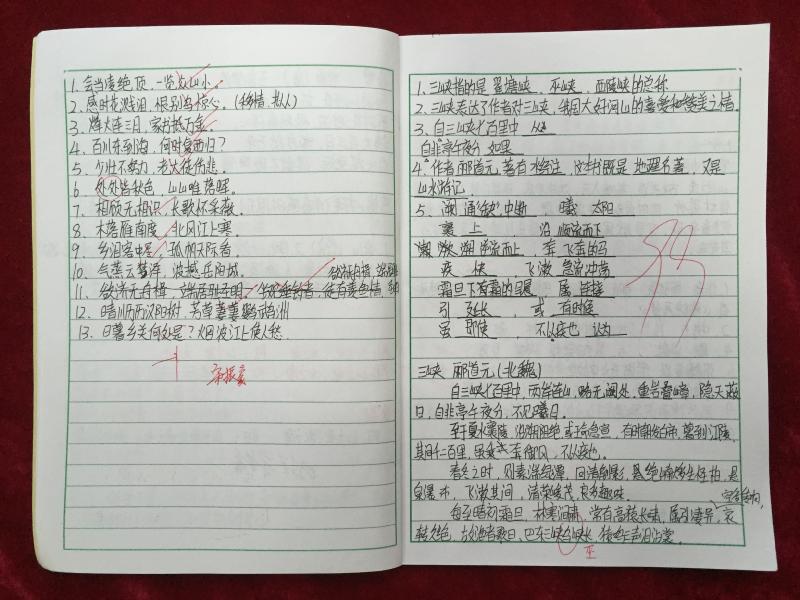 1. 会当凌绝顶，一览众山小。
2. 感时花溅泪，恨别鸟惊心。(移情，拟人)
3. 烽火连三月，家书抵万金。
4. 百川东到海，何时复西归？
5. 少壮不努力，老大徒伤悲。
6. 处处皆秋色，山山唯落晖。
7. 相顾无相识，长歌怀采薇。
8. 木落雁南度，北风江上寒。
9. 乡泪客中尽，孤帆天际看。
10. 气蒸云梦泽，波撼岳阳城。
11. 欲济无舟楫，端居耻圣明。坐观垂钓者，徒有羡鱼情。
12. 晴川历历汉阳树，芳草萋萋鹦鹉洲
13. 日暮乡关何处是？烟波江上使人愁。
1. 三峡指的是 瞿塘峡，巫峡，西陵峡的总称
2. 三峡表达了作者对三峡，我国大好河山的喜爱和赞美之情。
3. 自三峡七百里中 从
自非亭午夜分 如果
4. 作者郦道元，著有水经注，这本书既是 地理名著，又是
山水游记。
5. 阙 通"缺"，中断 曦 太阳
襄 上 沿 顺流而下
溯 逆流而上 奔 飞奔的马
疾 快 飞漱 急流冲荡
霜旦 下霜的早晨 属 连接
引 延长 或 有时候
虽 即使 不以疾也 认为
三峡 郦道元(北魏)
自三峡七百里中，两岸连山，略无阙处，重岩叠嶂，隐天蔽
日，自非亭午夜分，不见曦月。
至于夏水襄陵，沿溯阻绝，或王命急宣，有时朝发白帝，暮到江陵，
其间千二百里，虽乘奔御风，不以疾也。
春冬之时，则素湍绿潭，回清倒影，绝巘多生怪柏，悬
泉瀑布，飞漱其间，清荣峻茂，良多趣味。
每至晴初霜旦，林寒涧肃，常有高猿长啸，属引凄异，空谷传响，哀
转久绝，故渔者歌曰，巴东三峡巫峡长，猿鸣三声泪沾裳。
巫